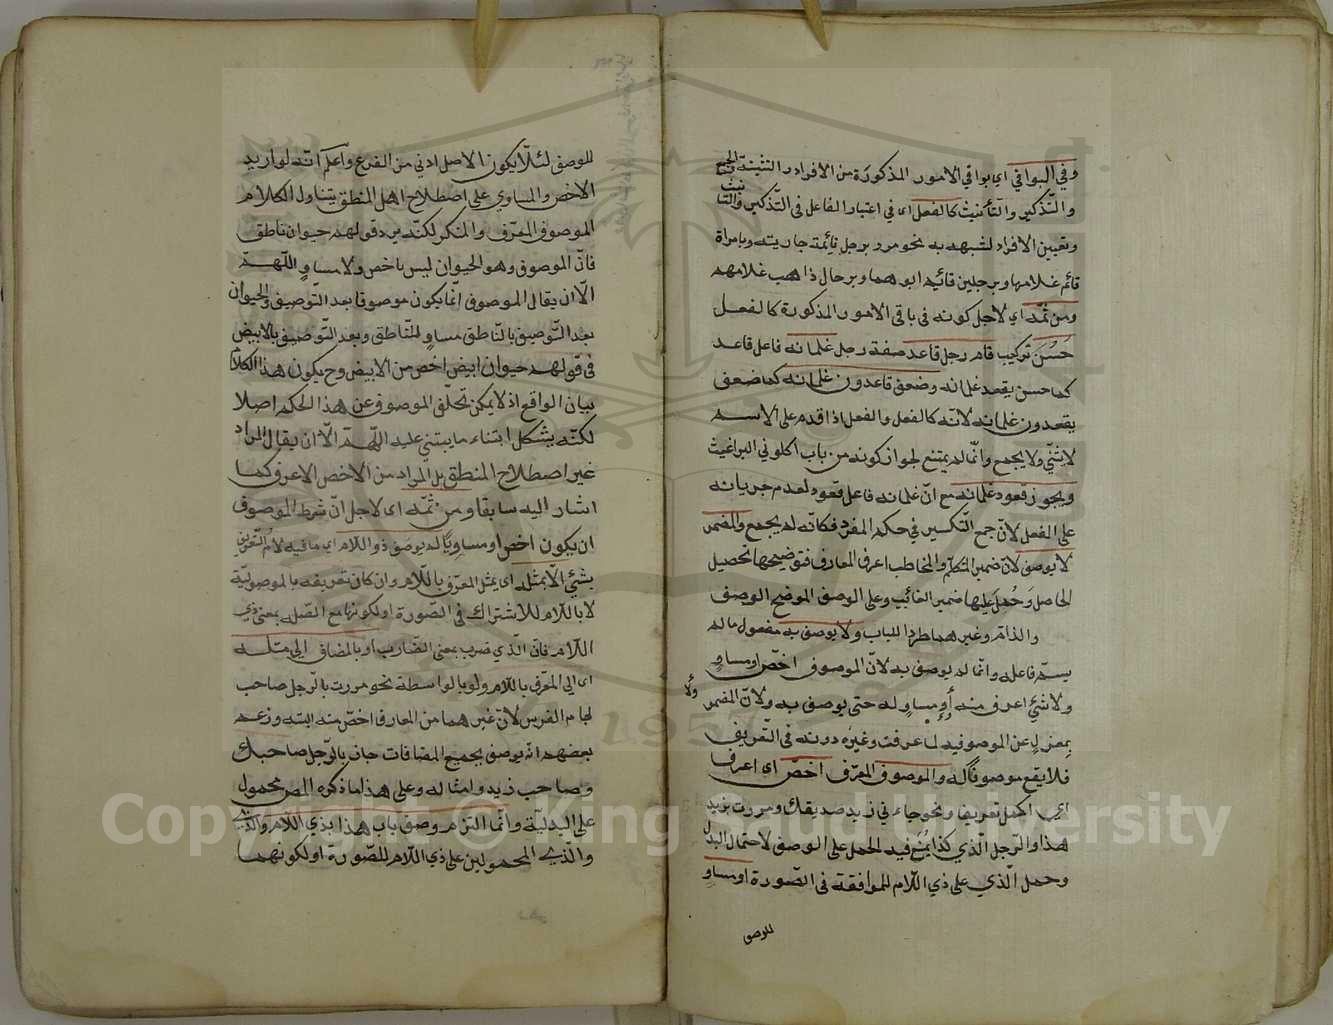 وفي البواقي اى بواقي الامور المذكورة من الافراد والتثنية والجمع
والتذكير والتأنيث كالفعل اى في اعتبار الفاعل فى التذكير والتانيث
وتعيين الافراد لشبهه به نحو مررت برجل قائمة جاريته وبامراة
قائم غلامها وبرجلين قائم ابوهما وبرجال ذاهب غلامهم
ومن ثمه اى لاجل كونه فى باقى الامور المذكورة كالفعل
حسن تركيب قام رجل قاعد صفة رجل غلمانه فاعل قاعد
كما حسن يقعد غلمانه وضعف قاعدون غلمانه كما ضعف
يقعدون غلمانه لانه كالفعل والفعل اذا قدم على الاسم
لا يثنّي ولا يجمع وانّما لم يمتنع لجواز كونه من باب اكلوني البراغيث
ويجوز قعود غلمانه مع انّ غلمانه فاعل قعود لعدم جريانه
على الفعل لانّ جمع التكسير في حكم المفرد فكانّه لم يجمع والمضمر
لا يوصف لانّ ضمير المتكلّم والمخاطب اعرف المعارف فتوضيحها تحصيل
الحاصل وحمل عليها ضمير الغائب وعلى الوصف الموضح الوصف
والذام وغيرهما طردا للباب ولا يوصف به مفعول ما لم
يسمّ فاعله وانّما لم يوصف به لانّ الموصوف اخصّ او مساوٍ
ولا شئ اعرف منه ولا أو مساوٍ له حتى يوصف به ولانّ المضمر
بمعزل عن الموصوفيه لما عرفت وغيره دونه فى التّعريف
فلا يقع موصوفًا له والموصوف المعرّف اخصّ اى اعرف
اى اكمل تعريفا ونحو جاءنى زيد صديقك ومررت بزيد
هذا والرّجل الّذي كذا يمنع فيه الحمل على الوصف لاحتمال البدل
وحمل الّذي على ذي اللّام للموافقة فى الصّورة او مساوٍ
للوصف
للوصف لئلّا يكون الاصل ادني من الفرع واعلم انه لو اريد
الاخص والمساوي على اصطلاح اهل المنطق يتناول الكلام
الموصوف المعرّف والمنكر لكنّه يرد قولهم حيوان ناطق
فانّ الموصوف وهو الحيوان ليس باخص ولا مساوٍ اللّهمّ
الّا ان يقال الموصوف انّما يكون موصوفا بعد التّوصيف والحيوان
بعد التّوصيف بالنّاطق مساوٍ للنّاطق وبعد التّوصيف بالابيض
فى قولهم حيوان ابيض اخص من الابيض وح يكون هذا الكلام
بيان الواقع اذ لا يمكن تخلّف الموصوف عن هذا الحكم اصلا
لكنّه يشكل ابتناء ما يبتني عليه اللّهمّ الّا ان يقال المراد
غير اصطلاح المنطق بل المراد من الاخص الاعرف كما
اشار اليه سابقا ومن ثمّه اى لاجل انّ شرط الموصوف
ان يكون اخص او مساويًا لم يوصف ذو اللّام اى ما فيه لام التّعريف
بشئ الّا بمثله اى بمثل المعرّف باللّام وان كان تعريفه بالموصوليّة
لا باللّام للاشتراك فى الصّورة او لكونها مع الصّله بمعنى ذي
اللّام فانّ الّذي ضرب بمعنى الضارب او بالمضاف الى مثله
اى الى المعرّف باللّام ولو بالواسطة نحو مررت بالرّجل صاحب
لجام الفرس لانّ غيرهما من المعارف اخصّ منه البته وزعم
بعضهم انّه يوصف بجميع المضافات جاءنى بالرّجل صاحبك
وصاحب زيد وامثاله وعلى هذا ما ذكره المص محمول
على البدليّة وانّما التزم وصف باب هذا بذي اللّام والّذي
والّذي المحمولين على ذي اللّام للصّورة او لكونهما
Copyright © King Saud University
1957